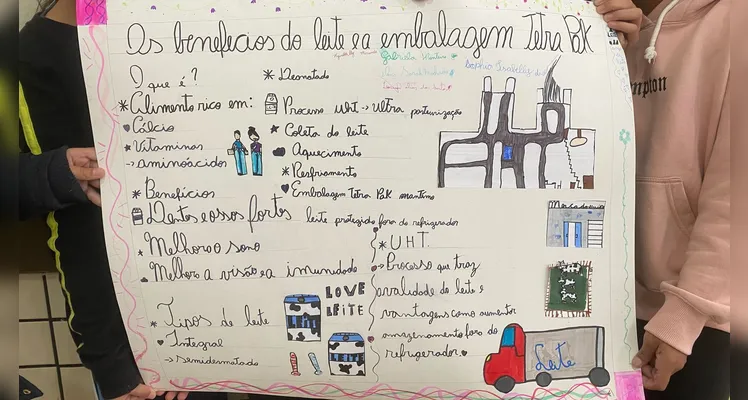 Os benefecios do leite e a embalagem Tetra Pak
Gabriela
Sophia Isabelly
O que é?
* Alimento rico em:
Cálcio
* Vitaminas
→ aminoácidos
* Benefícios
Dentes e ossos fortes
* Melhora o sono
Melhora a visão e a imunidade
* Tipos de leite
Integral
→ semidesnatado
LOVE
LEITE
* Desnatado
Processo UHT → ultra pasteurização
* Coleta do leite
Aquecimento
* Resfriamento
Embalagem Tetra Pak mantimo
leite protegido fora do refrigerador
* UHT
Processo que traz
a validade do leite e
vantagens como aumentar
armazenamento fora do
refrigerador.
Mercadinho
Leite